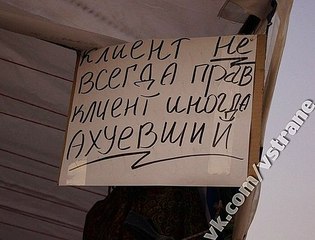 КЛИЕНТ НЕ
ВСЕГДА ПРАВ
КЛИЕНТ ИНОГДА
АХУЕВШИЙ
vk.com/vstrane